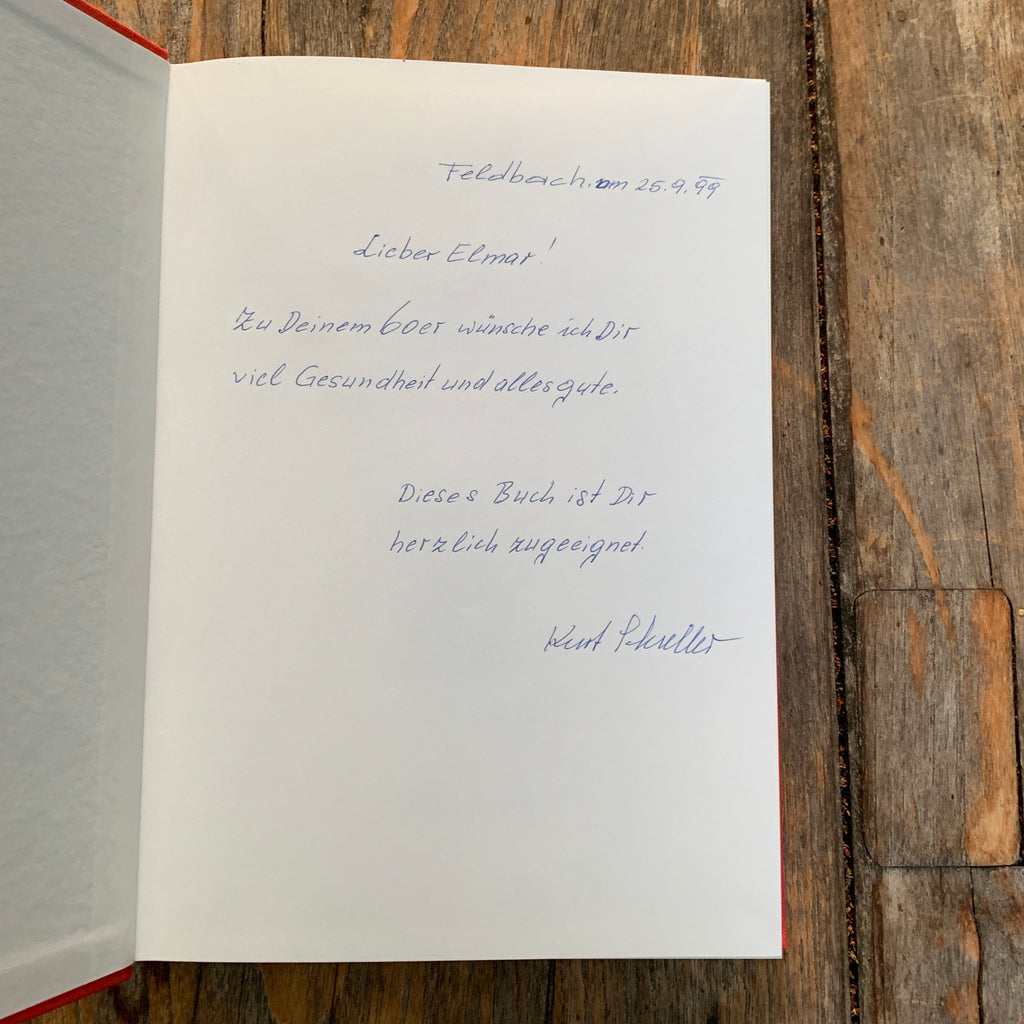 Feldbach, am 25.9.99
Lieber Elmar!
Zu Deinem 60er wünsche ich Dir
viel Gesundheit und alles gute.
Dieses Buch ist Dir
herzlich zugeeignet.
Kurt